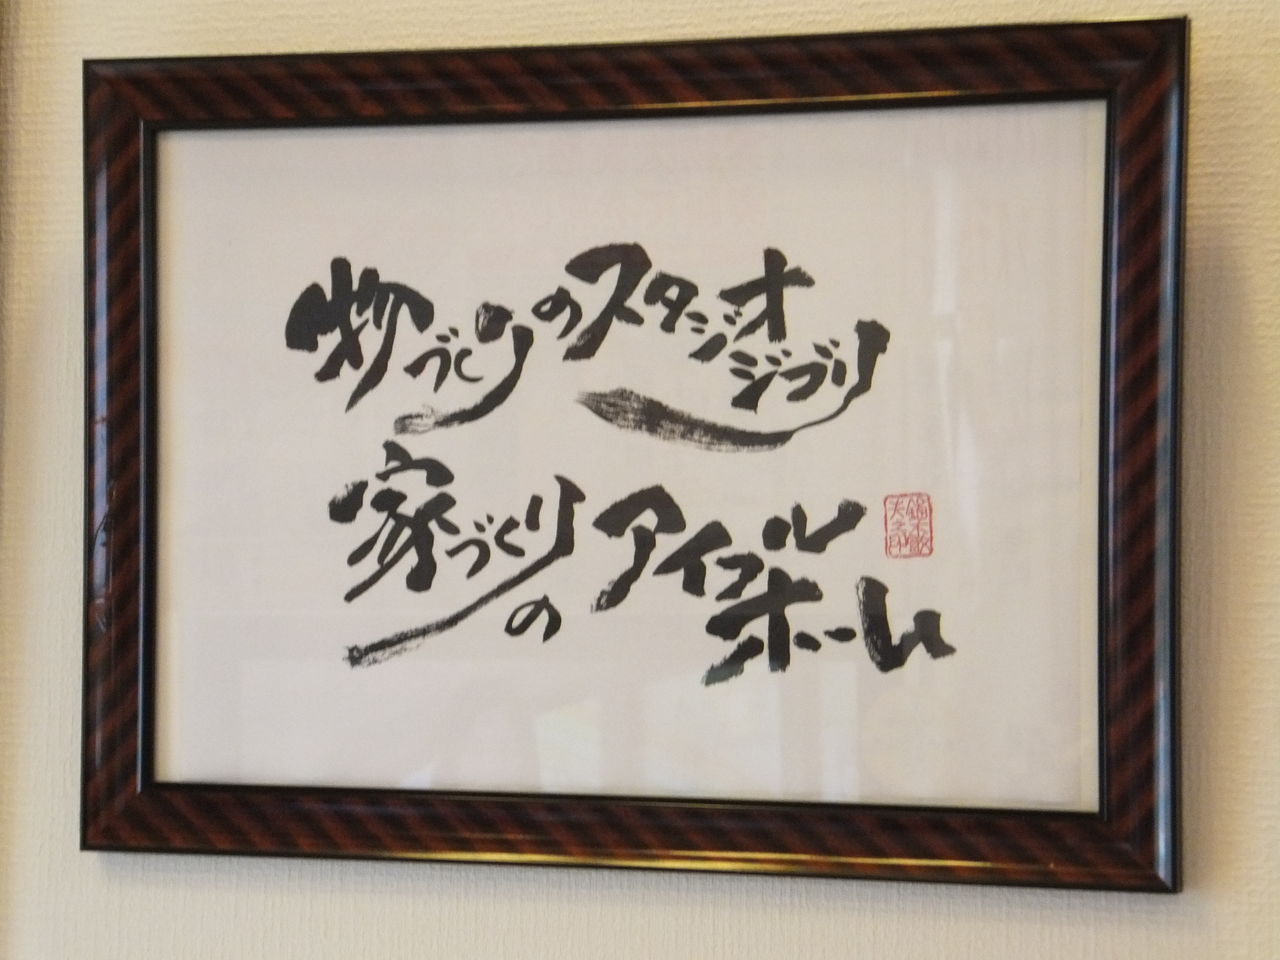 物づくりのスタジオジブリ
家づくりのアイフルホーム